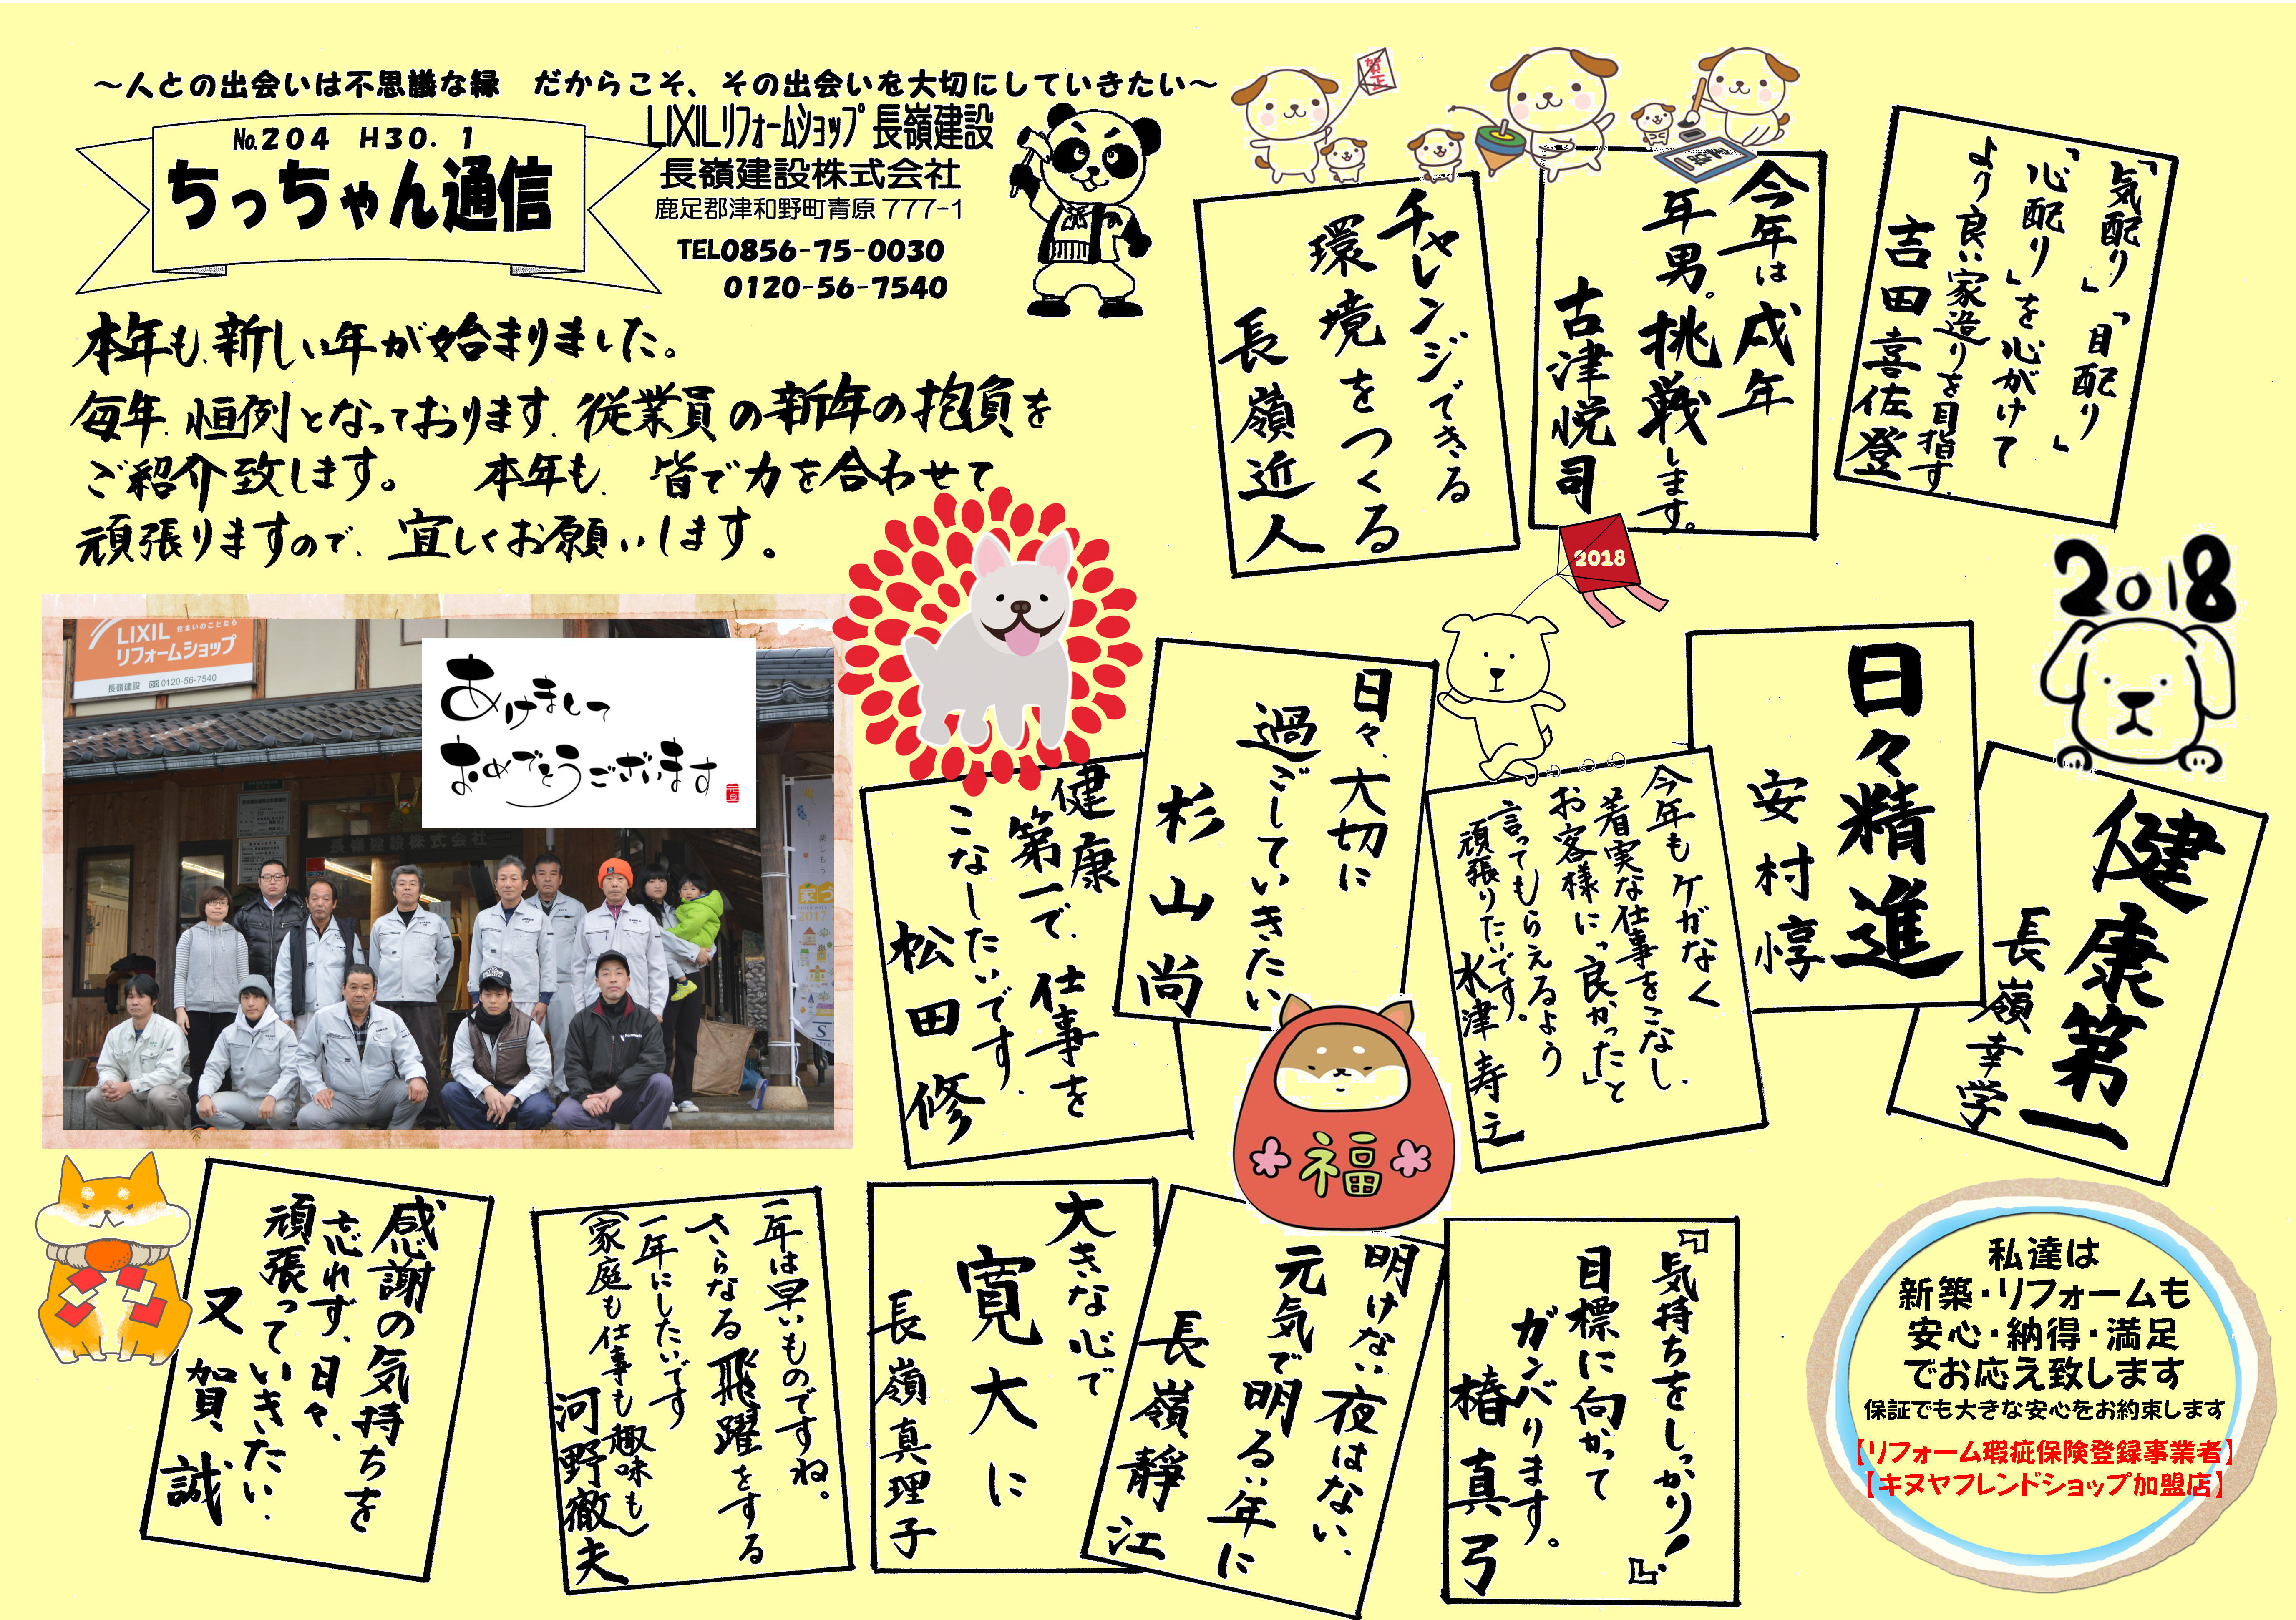 ～人との出会いは不思議な縁　だからこそ、その出会いを大切にしていきたい～
№204　H30. 1
ちっちゃん通信
LIXILリフォームショップ 長嶺建設
長嶺建設株式会社
鹿足郡津和野町青原777-1
TEL0856-75-0030
0120-56-7540
本年も、新しい年が始まりました。
毎年、恒例となっております、従業員の新年の抱負を
ご紹介致します。　本年も、皆で力を合わせて
頑張りますので、宜しくお願いします。
賀正
「気配り」「目配り」
「心配り」を心がけて
より良い家造りを目指す。
吉田喜佐登
今年は戌年
年男。挑戦します。
古津悦司
チャレンジできる
環境をつくる
長嶺近人
2018
2018
LIXIL 住まいのことなら
リフォームショップ
長嶺建設 0120-56-7540
あけまして
おめでとうございます
元旦
長嶺建設株式会社
2017
健康第一
長嶺幸学
日々精進
安村惇
今年もケガなく
着実な仕事をこなし、
お客様に「良かった」と
言ってもらえるよう
頑張りたいです。
水津寿之
日々、大切に
過ごしていきたい
杉山尚
健康
第一で、仕事を
こなしたいです。
松田修
福
『気持ちをしっかり!』
目標に向かって
ガンバります。
椿真弓
明けない夜はない、
元気で明るい年に
長嶺靜江
大きな心で
寛大に
長嶺真理子
一年は早いものですね。
さらなる飛躍をする
一年にしたいです
(家庭も仕事も趣味も)
河野徹夫
感謝の気持ちを
忘れず、日々、
頑張っていきたい.
又賀誠
私達は
新築・リフォームも
安心・納得・満足
でお応え致します
保証でも大きな安心をお約束します
【リフォーム瑕疵保険登録事業者】
【キヌヤフレンドショップ加盟店】